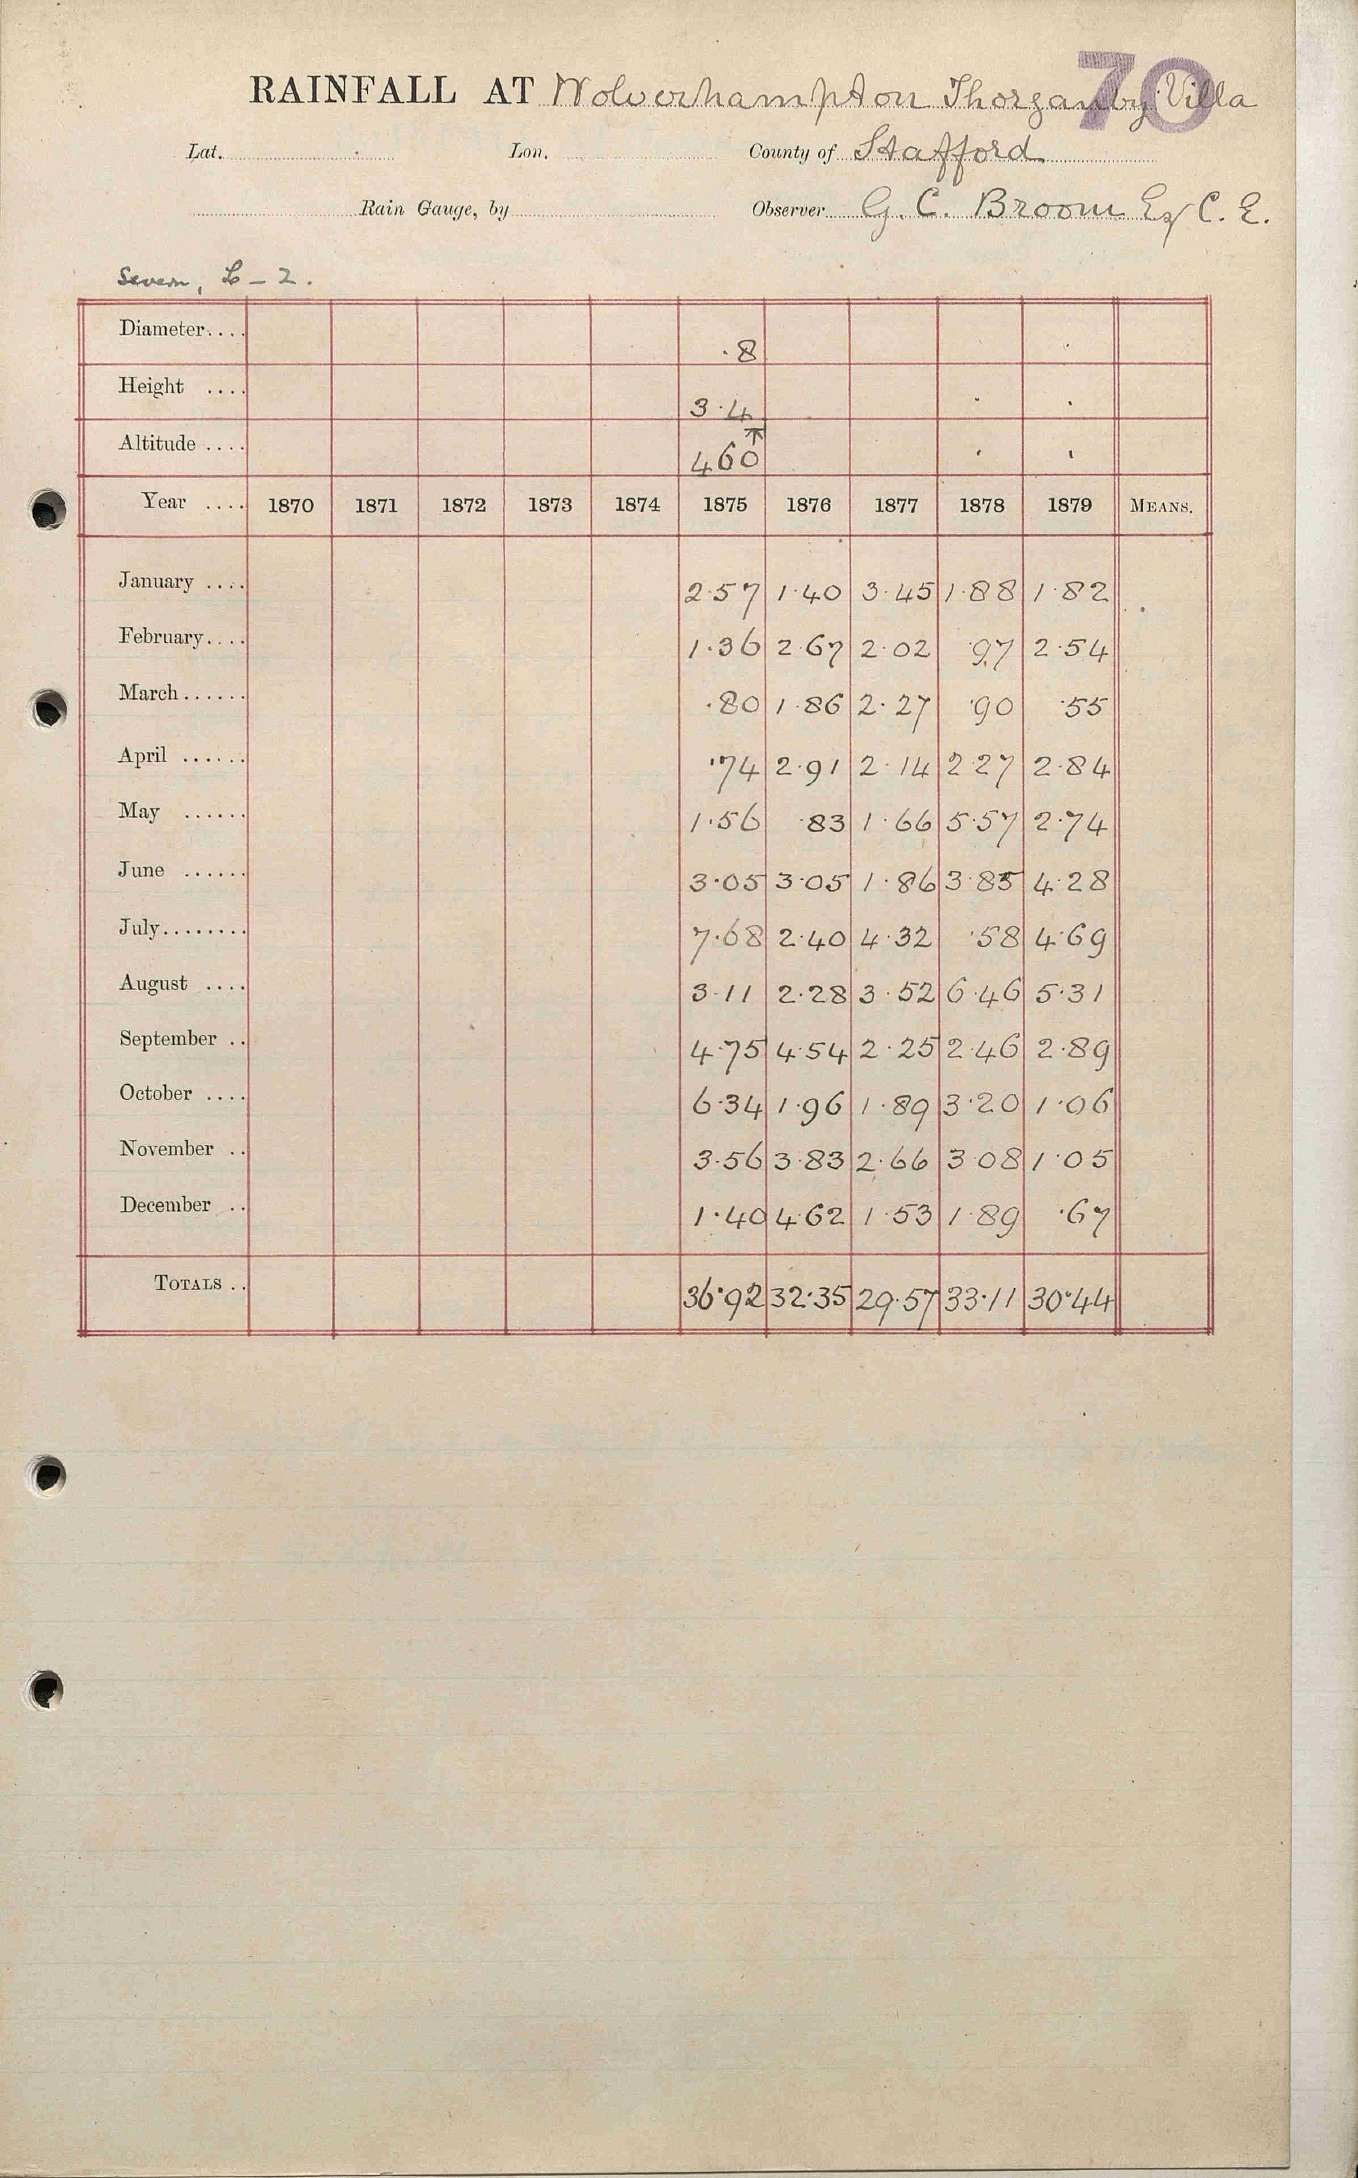 70
RAINFALL AT Wolverhampton Thorganby Villa
Lat. Lon. County of Stafford
Rain Gauge, by Observer G. C. Broom Esq C. E.
Severn, L - 2.
Diameter.... ·8
Height .... 3·4
Altitude .... 460
Year .... 1870 1871 1872 1873 1874 1875 1876 1877 1878 1879 MEANS.
January .... 2·57 1·40 3·45 1·88 1·82
February.... 1·36 2·67 2·02 ·97 2·54
March...... ·80 1·86 2·27 ·90 ·55
April ...... ·74 2·91 2·14 2·27 2·84
May ...... 1·56 ·83 1·66 5·57 2·74
June ...... 3·05 3·05 1·86 3·85 4·28
July........ 7·68 2·40 4·32 ·58 4·69
August .... 3·11 2·28 3·52 6·46 5·31
September .. 4·75 4·54 2·25 2·46 2·89
October .... 6·34 1·96 1·89 3·20 1·06
November .. 3·56 3·83 2·66 3·08 1·05
December .. 1·40 4·62 1·53 1·89 ·67
TOTALS .. 36·92 32·35 29·57 33·11 30·44